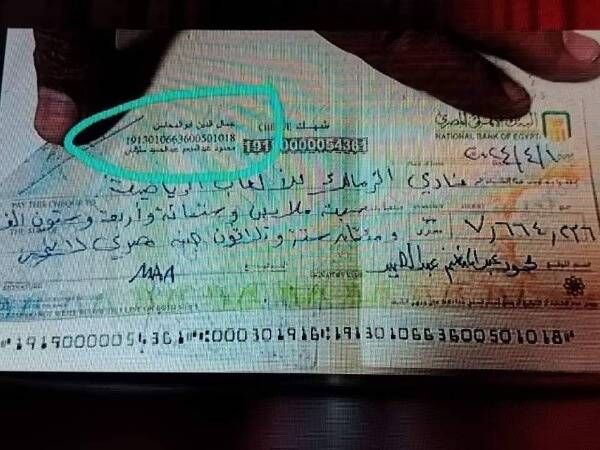 جمال الدين ابو المحاسن
1913010663600501018
محمود عبدالمنعم عبدالحميد سليمان
CHEQUE شيك
191900000054361
البنك الأهلي المصري
NATIONAL BANK OF EGYPT
٢٠٢٤/٤/١
PAY THIS CHEQUE TO
نادي الزمالك للألعاب الرياضية
سبعة ملايين وستمائة وأربعة وستون ألف
٧,٦٦٤,٢٣٦
ومئتان ستة وثلاثون جنيه مصري لا غير
محمود عبدالمنعم عبدالحميد
19190000005436 000301916 1913010663600501018